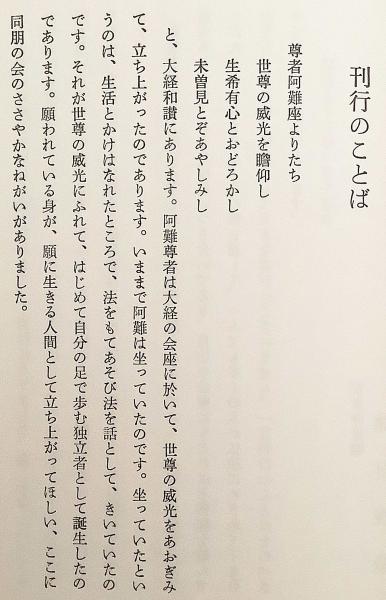 刊行のことば
尊者阿難座よりたち
世尊の威光を瞻仰し
生希有心とおどろかし
未曽見とぞあやしみし
と、大経和讃にあります。阿難尊者は大経の会座に於いて、世尊の威光をあおぎみ
て、立ち上がったのであります。いままで阿難は坐っていたのです。坐っていたとい
うのは、生活とかけはなれたところで、法をもてあそび法を話として、きいていたの
です。それが世尊の威光にふれて、はじめて自分の足で歩む独立者として誕生したの
であります。願われている身が、願に生きる人間として立ち上がってほしい、ここに
同朋の会のささやかなねがいがありました。